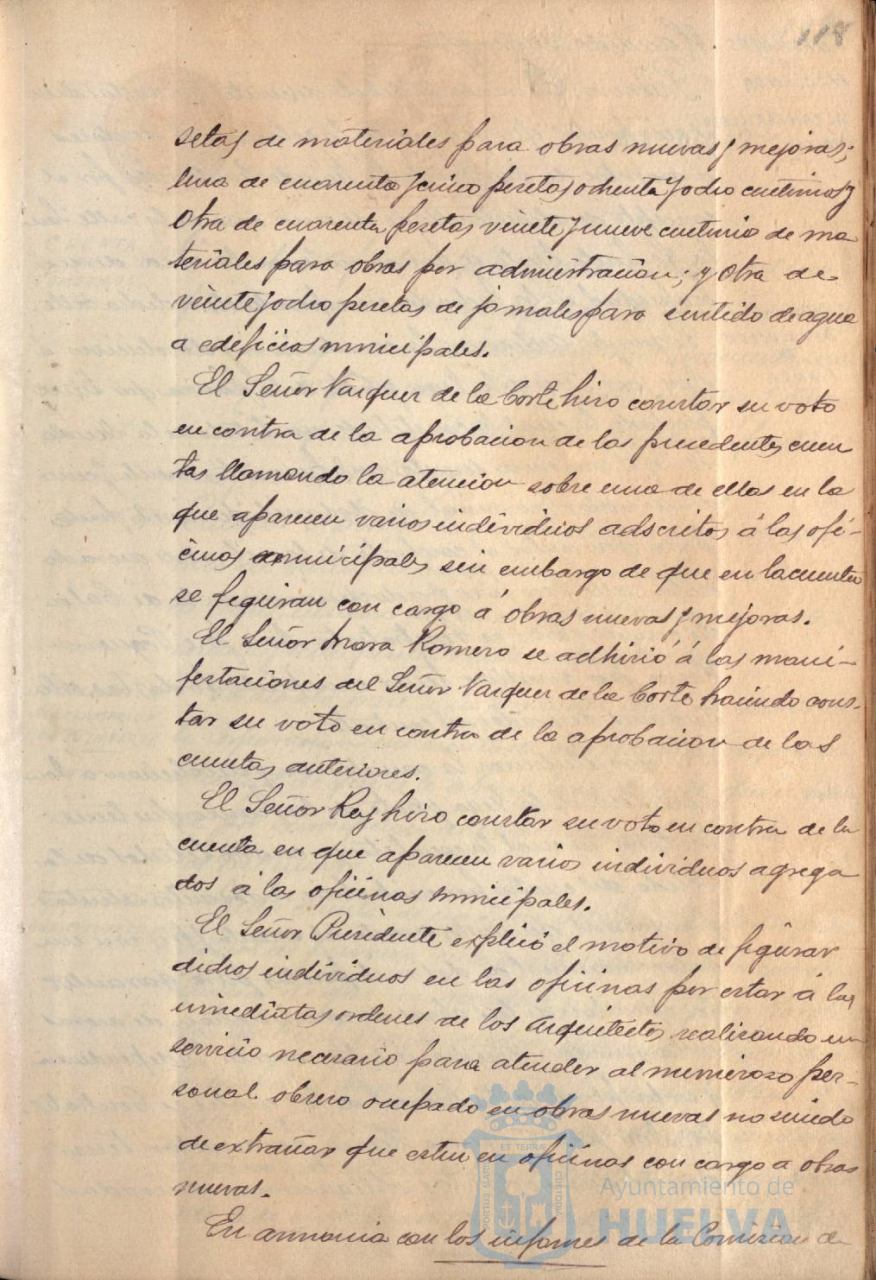 118
setas de materiales para obras nuevas y mejoras;
una de cuarenta y cinco pesetas ochenta y ocho centimos y
otra de cuarenta pesetas veinte y nueve centimo de ma
teriales para obras por administracion; y otra de
veinte y ocho pesetas de jornales para surtido de agua
a edeficios municipales.
El Señor Vazquez de la Corte hizo constar su voto
en contra de la aprobacion de las precedentes cuen
tas llamando la atencion sobre una de ellas en la
que aparecen varios individuos adscritos á las ofi-
cinas municipales sin embargo de que en la cuenta
se figuran con cargo á obras nuevas y mejoras.
El Señor Mora Romero se adhirió á las mani-
festaciones del Señor Vazquez de la Corte haciendo cons-
tar su voto en contra de la aprobacion de las
cuentas anteriores.
El Señor Rey hizo constar su voto en contra de la
cuenta en que aparecen varios individuos agrega
dos á las oficinas municipales.
El Señor Presidente explicó el motivo de figurar
dichos individuos en las oficinas por estar á las
inmediatas ordenes de los Arquitectos realizando un
servicio necesario para atender al numeroso per-
sonal obrero ocupado en obras nuevas no siendo
de extrañar que esten en oficinas con cargo a obras
nuevas.
En armonia con los informes de la Comision de
Ayuntamiento de
HUELVA